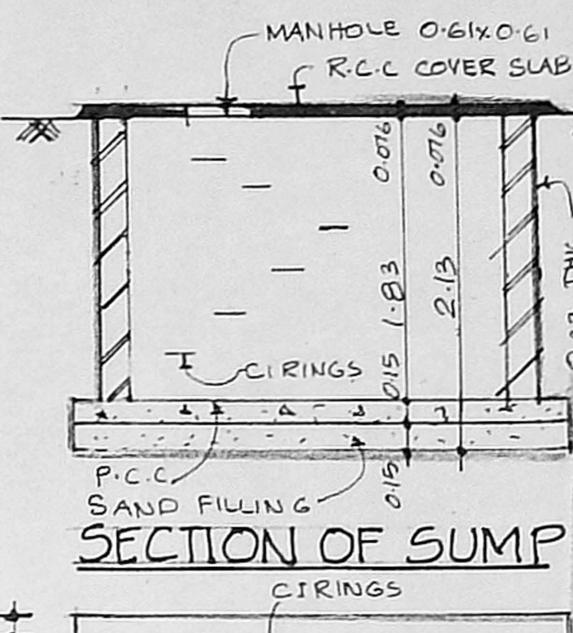 MANHOLE 0.61x0.61
R.C.C COVER SLAB
0.076
0.076
1.83
2.13
CIRINGS
0.15
P.C.C
SAND FILLING
0.15
SECTION OF SUMP
CIRINGS